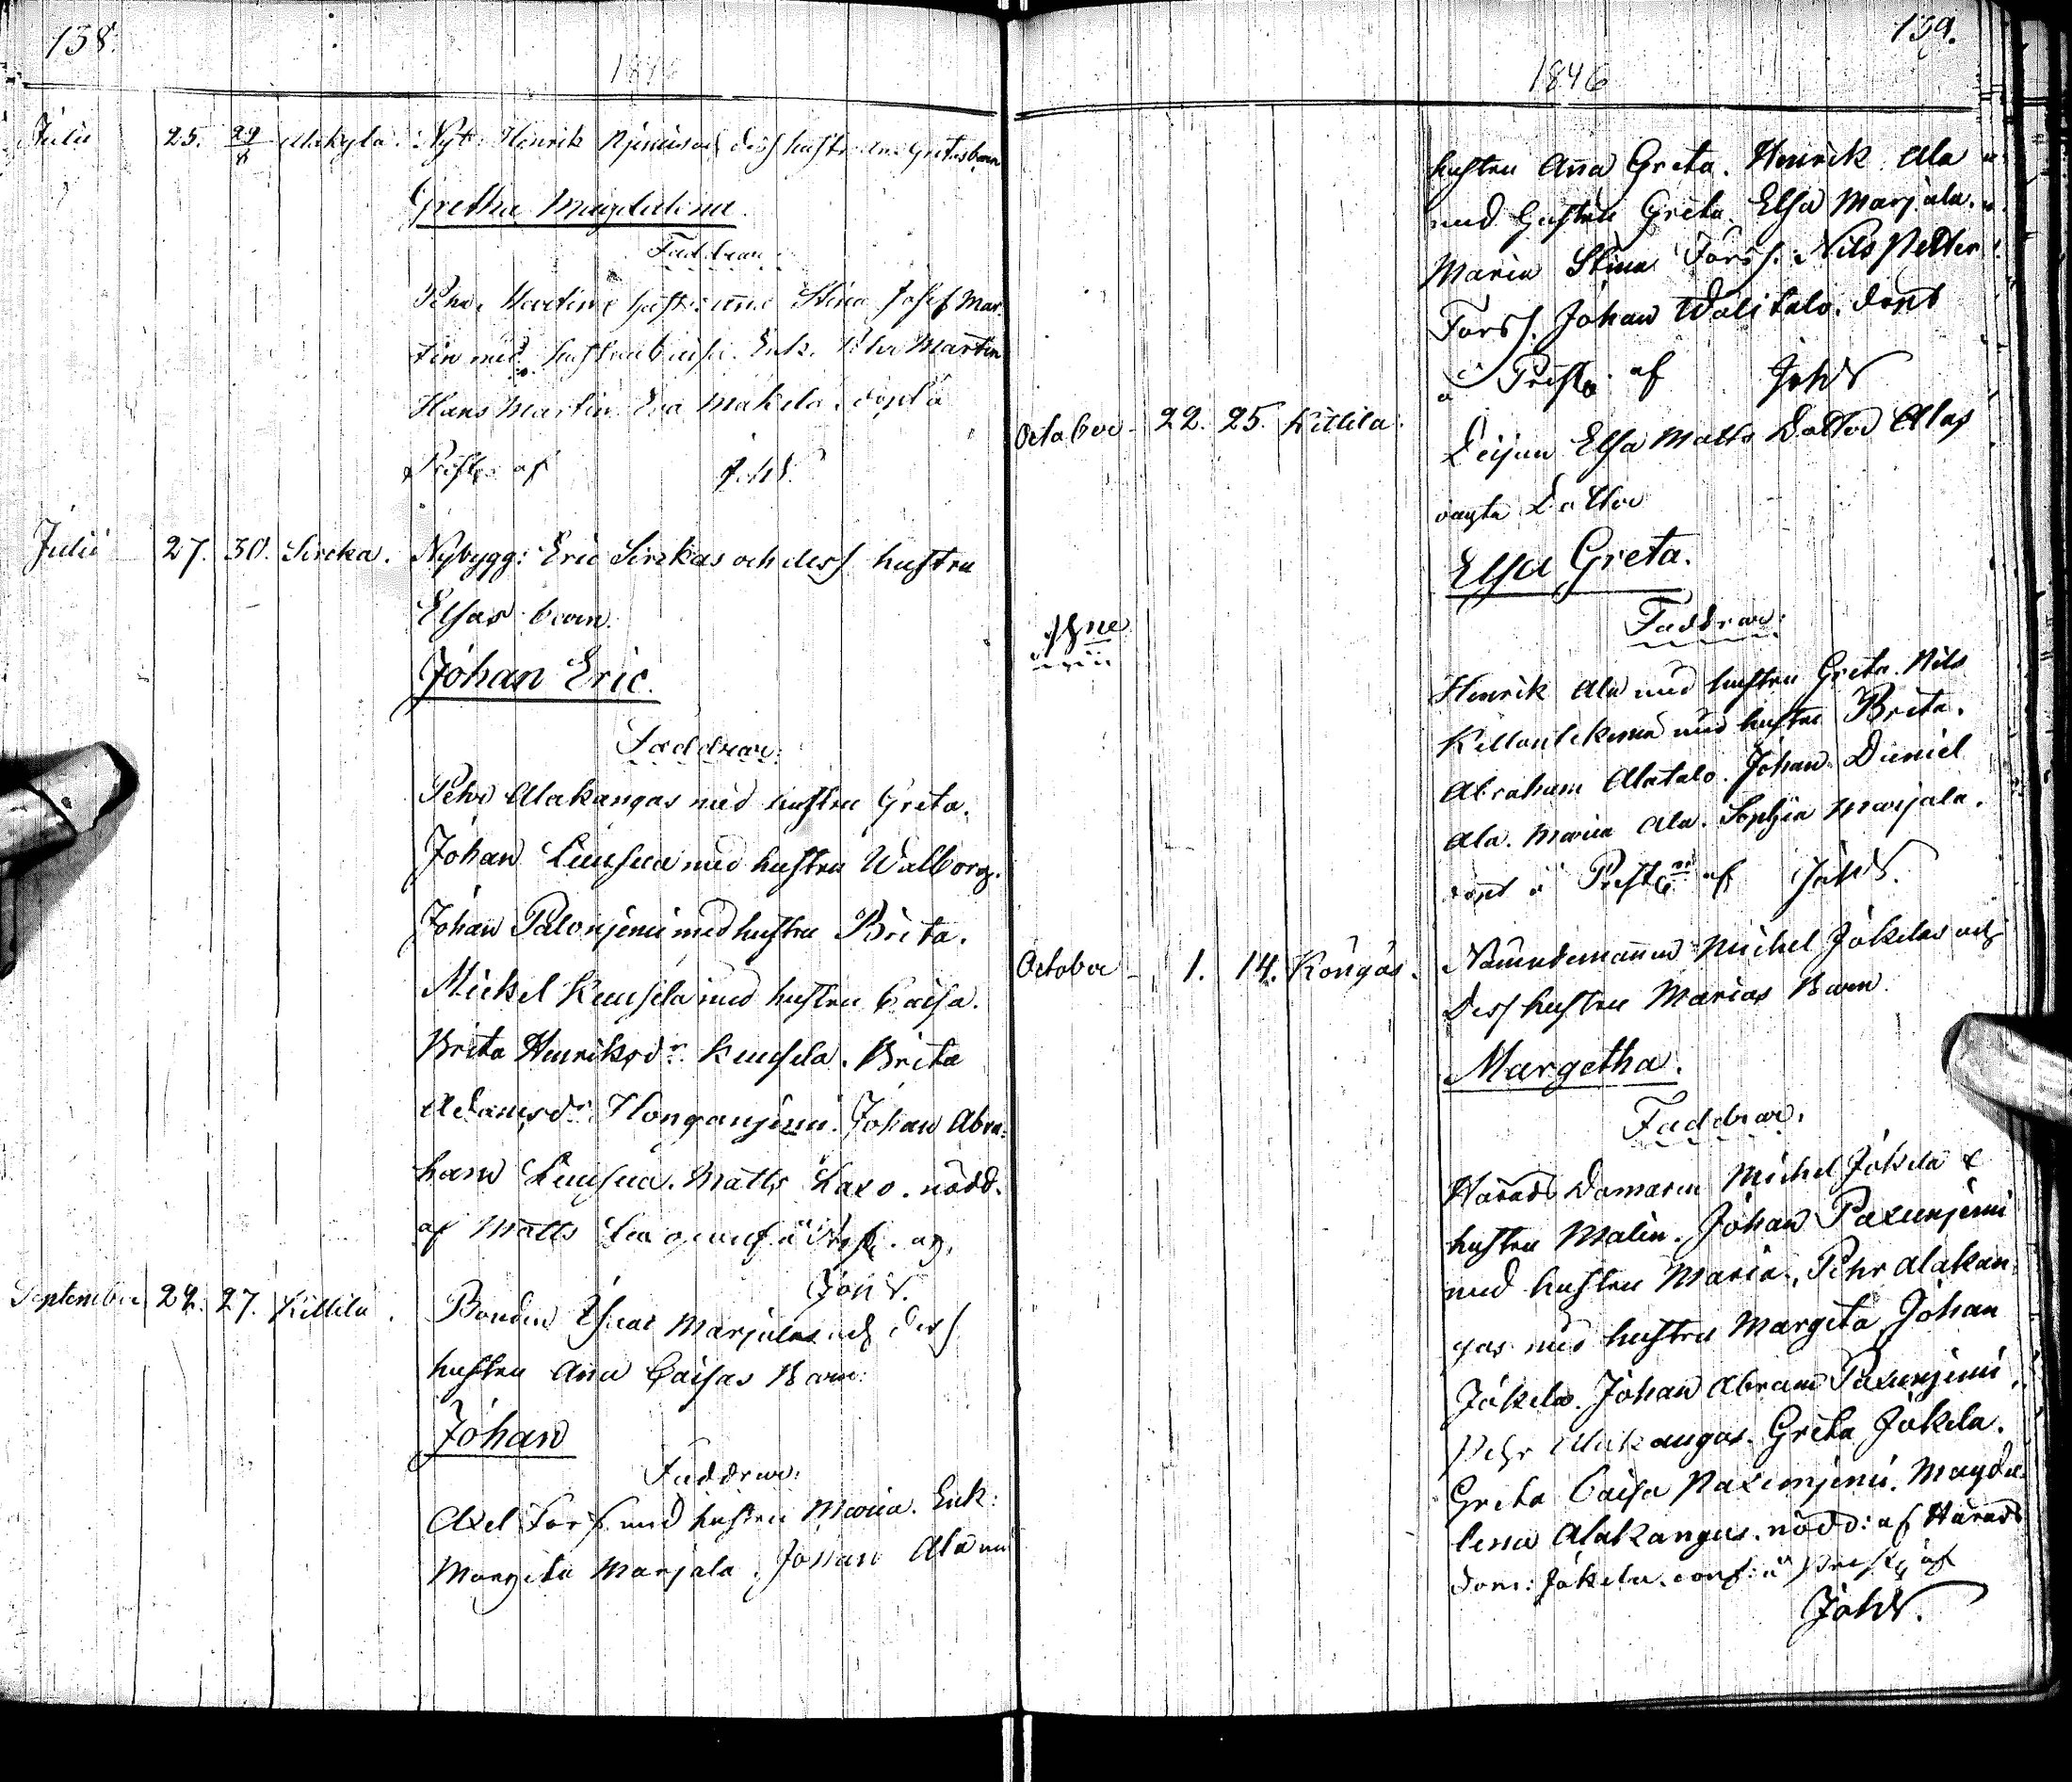 138.
1846
Julii 25. 29/8 Alakylä. Nyb: Henrik Njemis och dess hustr: An: Gretas barn
Gretha Magdalina
Faddrar:
Pehr Martin hust: Anna Stina Josef Mar-
tin med hustru Caisa. Enk. Martin
Hans Martin Eva Makela. döpt å
Prestg: af Joh W.
Julii 27. 30. Sircka. Nybygg: Eric Sirckas och dess hustru
Elsas barn.
Johan Eric.
Faddrar:
Pehr Alakangas med hustru Greta.
Johan Liusua med hustru Walborg.
Johan Palonjemi med hustru Brita.
Mickel Kuusela med hustru Caisa.
Brita Henriksdr. Kuusela. Brita
Adamsdr. Honganjemi. Johan Abra-
ham Liusua. Matts Laxo. nödd.
af Matts å Prestg. af
Joh W.
September 24. 27. Kittilä. Bonden Isaac Marjalas och dess
hustru Anna Caisas Barn:
Johan
Faddrar:
Axel Forss med hustru Maria. Enk:
Margeta Marjala. Johan Ala med
139.
1846
hustru Anna Greta. Henrik Ala
med hustru Greta. Elsa Marjala.
Maria Stina Forss. Nils Petter
Forss. Johan Walitalo. döpt
å Prestg: af Joh W
October 22. 25. Kittilä. Pigan Elsa Matts Dotter Alas
oägta Dotter
Elsa Greta.
Faddrar:
Henrik Ala med hustru Greta. Nils
med hustru Brita.
Abraham Alatalo. Johan Daniel
Ala. Maria Ala. Sophia Marjala.
döpt å Prestgn af Joh W.
October 1. 14. Köngäs. Nämndemannen Michel Jokelas och
Dess hustru Marias Barn.
Margetha.
Faddrar.
Härads Domaren Michel Jokela &
hustru Malin. Johan Paxunjemi
med hustru Maria. Pehr Alakan-
gas med hustru Margeta Johan
Jokela. Johan Abram Paxunjemi,
Pehr Alakangas. Greta Jokela.
Greta Caisa Paxunjemi. Magda-
lena Alakangas. nödd: af Härads
Dom: Jokela. conf: å Prestg af
Joh W.